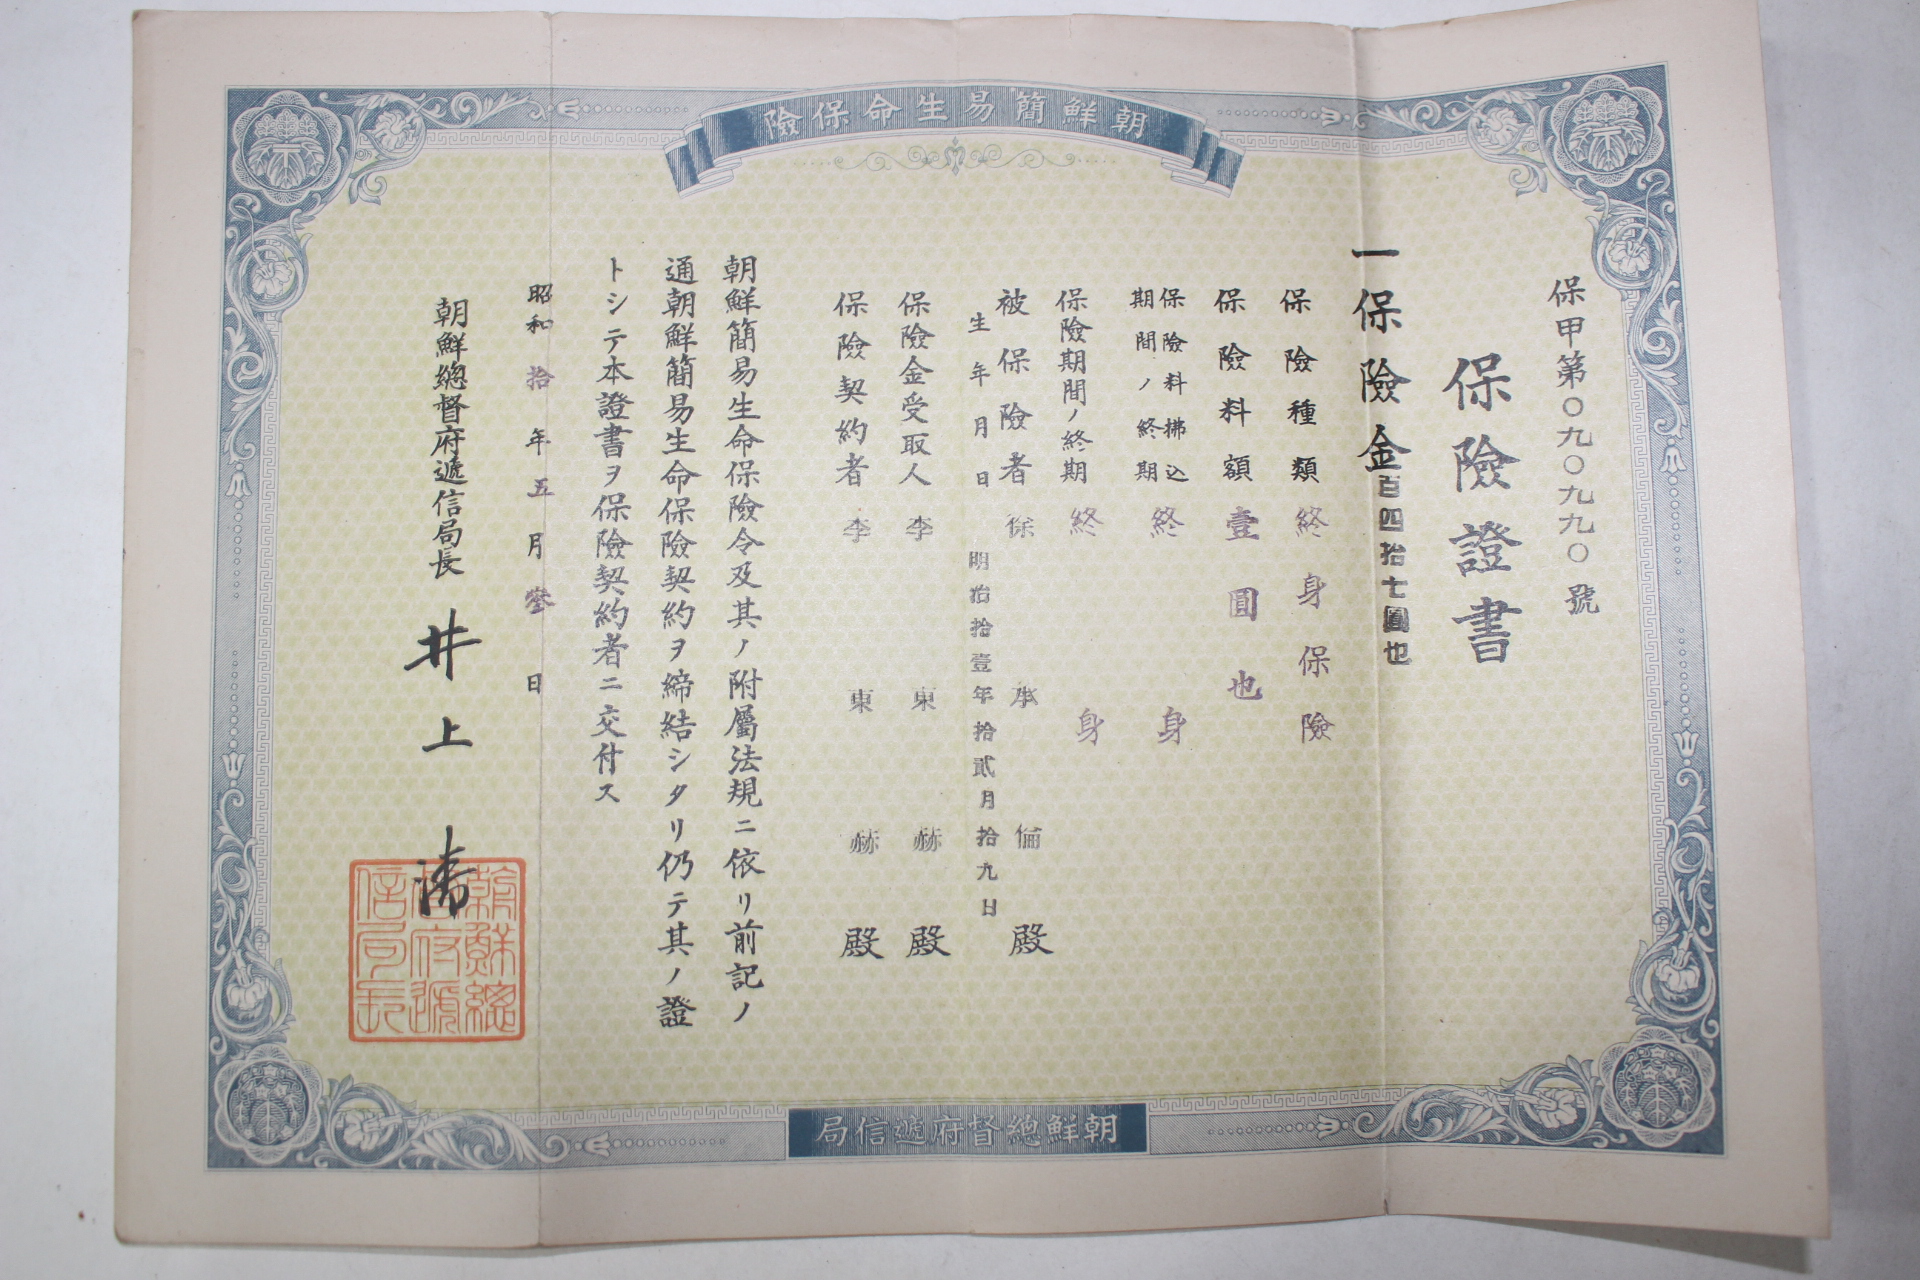 朝鮮簡易生命保險
保甲第〇九〇九九〇號
保險證書
一保險金百四拾七圓也
保險種類 終身保險
保險料額 壹圓也
保險料拂込
期間ノ終期 終身
保險期間ノ終期 終身
被保險者 徐承倫 殿
生年月日 明治拾壹年拾貳月拾九日
保險金受取人 李東赫 殿
保險契約者 李東赫 殿
朝鮮簡易生命保險令及其ノ附屬法規ニ依リ前記ノ
通朝鮮簡易生命保險契約ヲ締結シタリ仍テ其ノ證
トシテ本證書ヲ保險契約者ニ交付ス
昭和拾年五月參日
朝鮮總督府遞信局長 井上清
朝鮮總督府遞信局長
朝鮮總督府遞信局